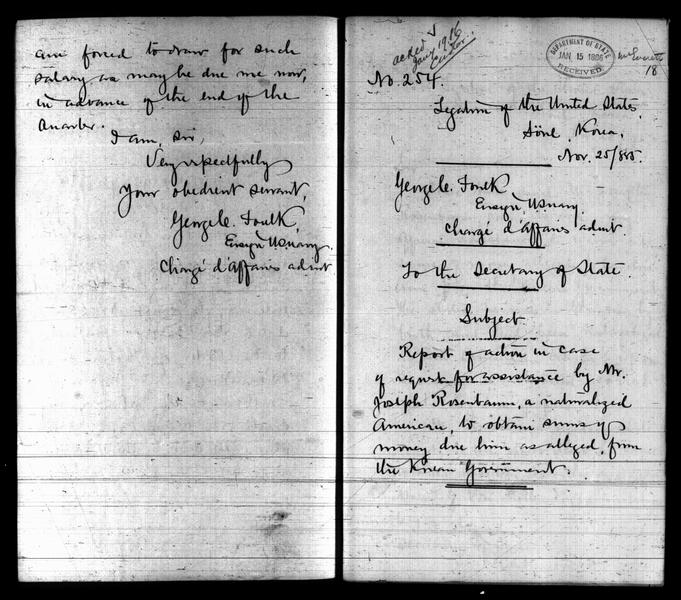 am forced to draw for such
salary as may be due me now,
in advance of the end of the
Quarter.
I am, sir,
Very respectfully
Your obedient servant,
George C. Foulk,
Ensign USnavy.
Chargé d'affaires ad int
acked
Jan'y 19 '86
DEPARTMENT OF STATE
JAN 15 1886
RECEIVED
18
No. 254.
Legation of the United States,
Söul, Korea,
Nov. 25/885.
George C. Foulk,
Ensign, USnavy
Chargé d'affaires ad int.
To the Secretary of State.
Subject
Report of action in case
of request for assistance by Mr.
Joseph Rosenbaum, a naturalized
American, to obtain sums of
money due him as alleged, from
the Korean Government.